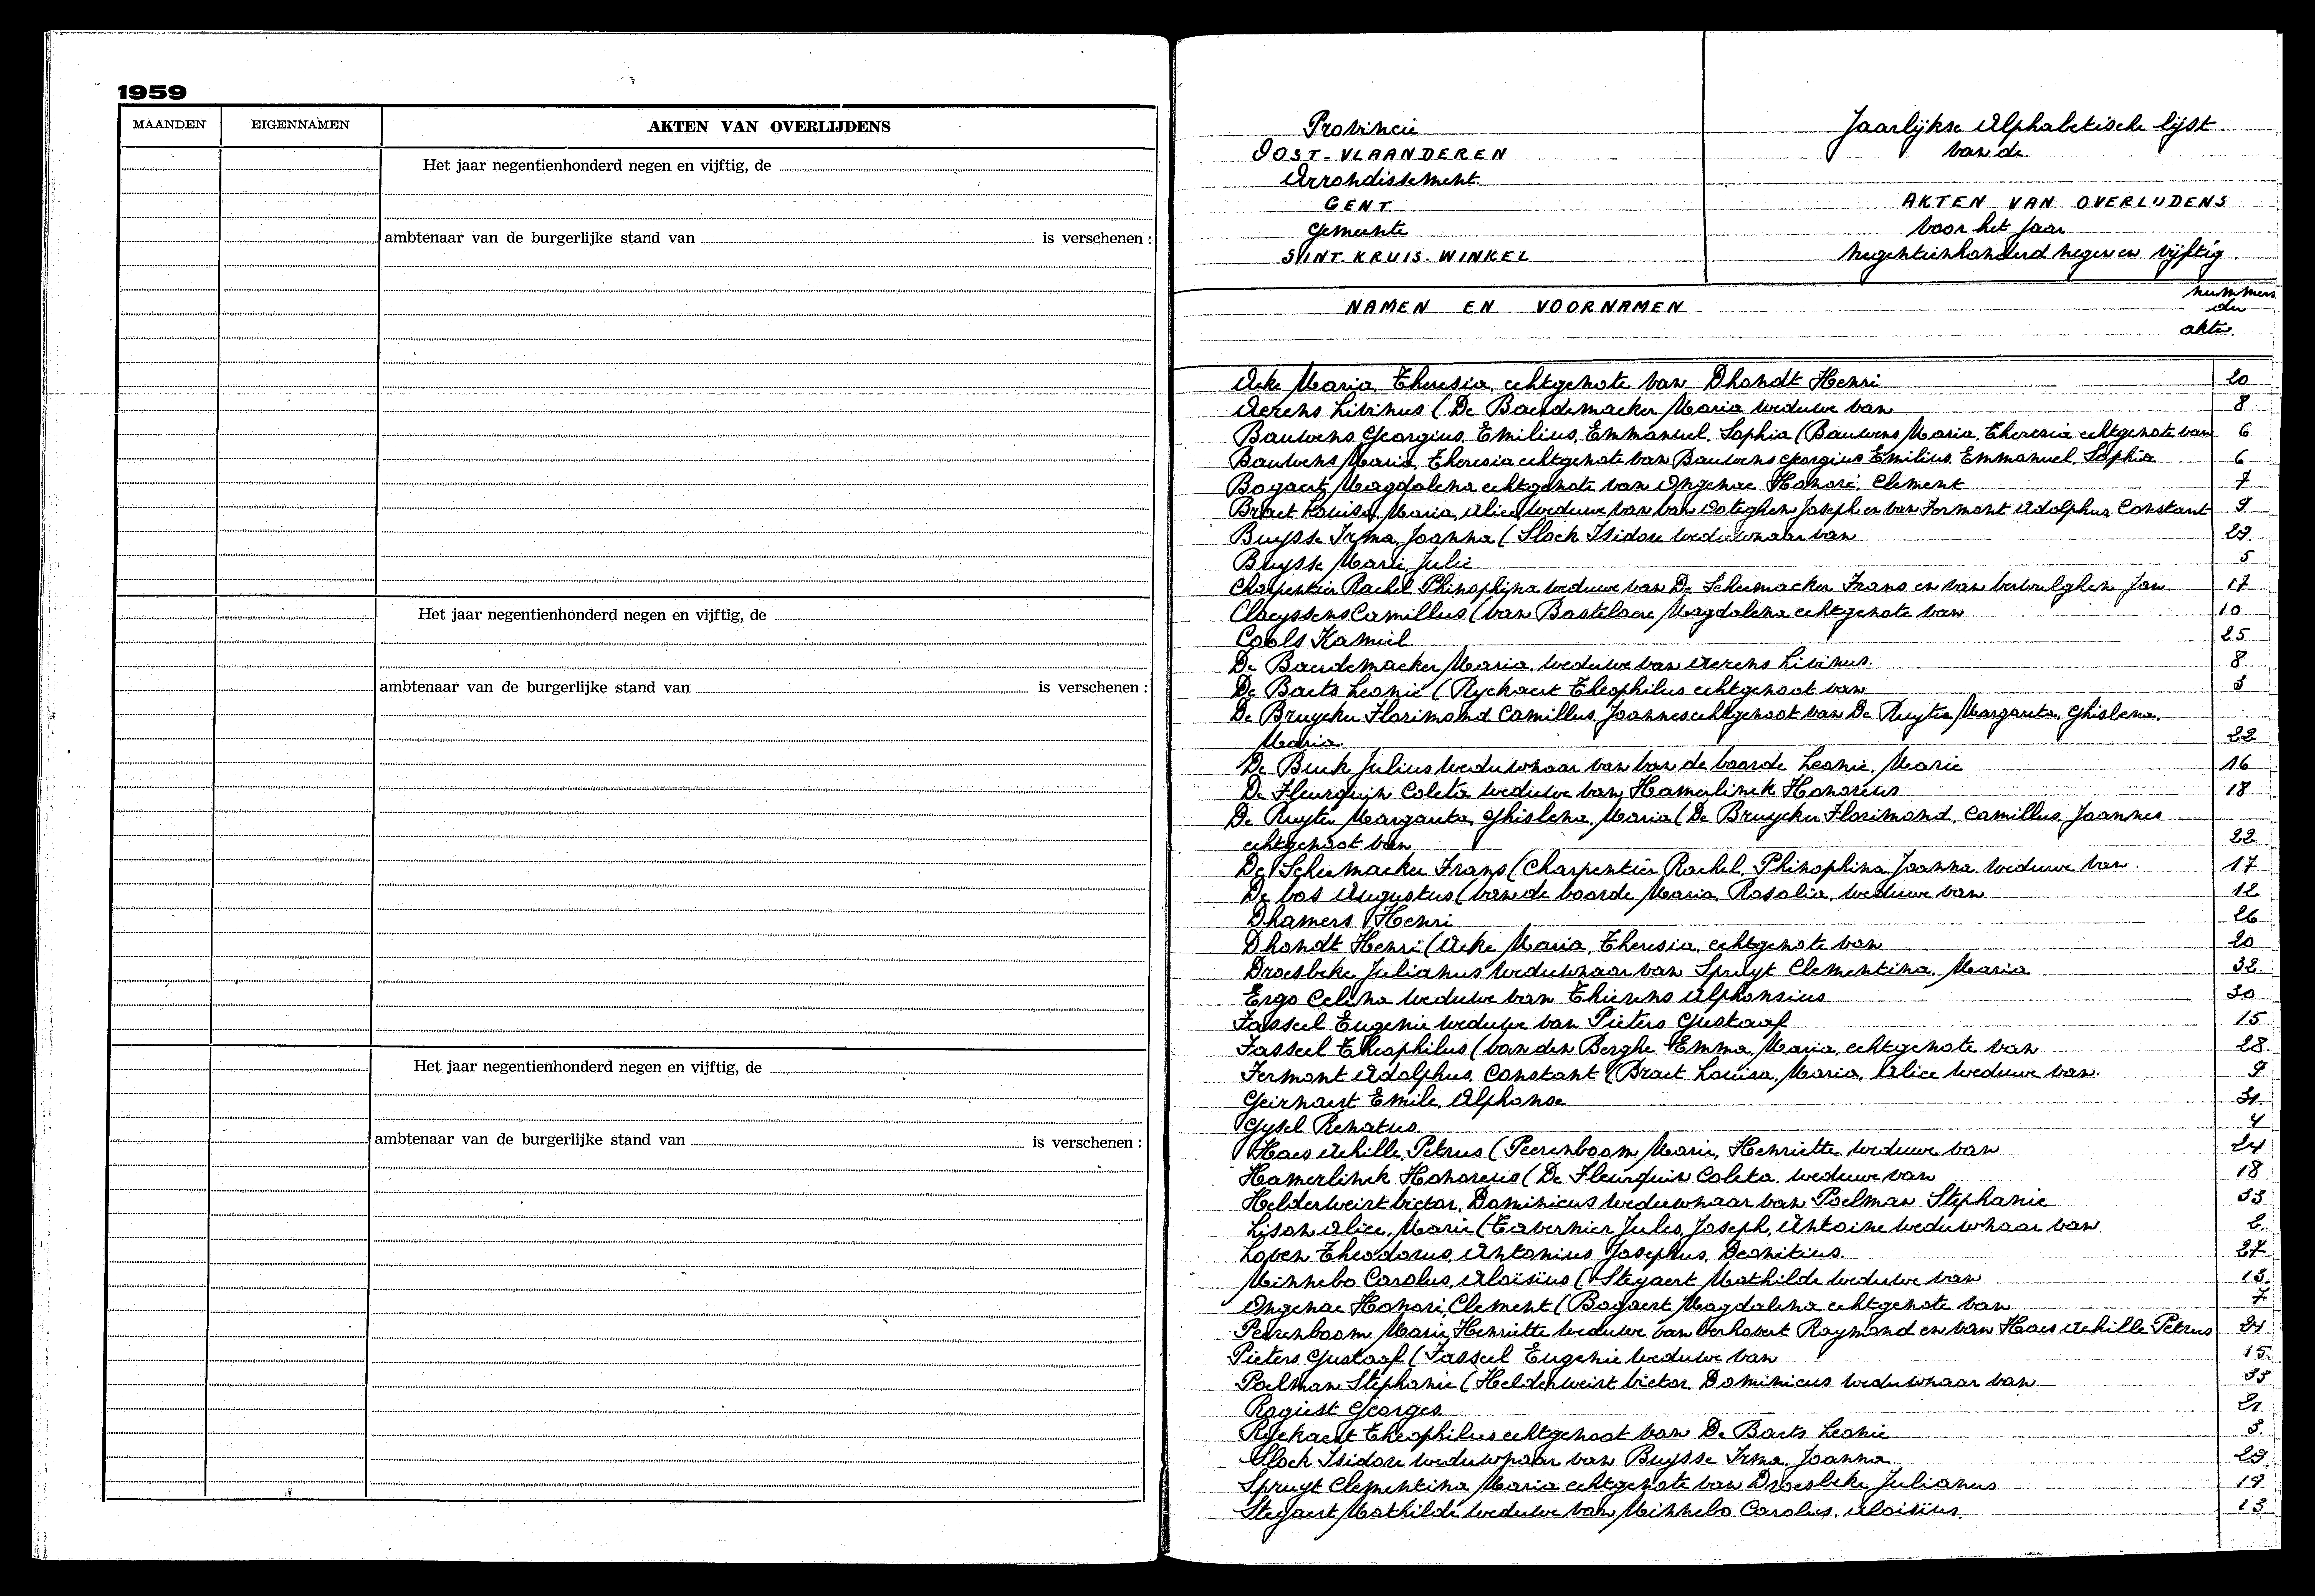 1959
MAANDEN EIGENNAMEN AKTEN VAN OVERLIJDENS
Het jaar negentienhonderd negen en vijftig, de
ambtenaar van de burgerlijke stand van is verschenen :
Het jaar negentienhonderd negen en vijftig, de
ambtenaar van de burgerlijke stand van is verschenen :
Het jaar negentienhonderd negen en vijftig, de
ambtenaar van de burgerlijke stand van is verschenen :
Provincie
OOST-VLAANDEREN
Arrondissement
GENT
Gemeente
SINT-KRUIS-WINKEL
Jaarlijkse Alphabetische lijst
van de
AKTEN VAN OVERLIJDENS
voor het jaar
negentienhonderd negen en vijftig
NAMEN EN VOORNAMEN
nummers
der
akten
Acke Maria, Theresia, echtgenote van Dhondt Henri 20
Aerens Livinus (De Baerdemaeker Maria weduwe van 8
Bauwens Georgius, Emilius, Emmanuel, Sophia (Bauwens Maria, Theresia echtgenote van 6
Bauwens Maria, Theresia echtgenote van Bauwens Georgius Emilius, Emmanuel, Sophia 6
Bogaert Magdalena echtgenote van Ongenae Honoré, Clement 7
Braet Louisa, Maria, Alice, weduwe van Van Ooteghem Joseph en van Fermont Adolphus, Constant 9
Buysse Irma, Joanna (Slock Isidore weduwnaar van 29
Buysse Marie Julie 5
Charpentier Rachel Phinophina weduwe van De Scheemaeker Frans en van Verwulghen Jan 17
Claeyssens Camillus (Van Bastelaere Magdalena echtgenote van 10
Cools Kamiel 25
De Baerdemaeker Maria weduwe van Aerens Livinus. 8
De Baets Leonie (Ryckaert Theophilus echtgenoot van 3
De Bruycker Florimond Camillus, Joannes echtgenoot van De Ruyter Margareta, Ghislena,
Maria 22
De Buck Julius weduwnaar van Van de Voorde Leonie, Marie 16
De Fleurquin Coleta weduwe van Hamerlinck Honoreus 18
De Ruyter Margareta, Ghislena, Maria (De Bruycker Florimond, Camillus, Joannes
echtgenoot van 22
De Scheemaeker Frans (Charpentier Rachel, Phinophina, Joanna weduwe van 17
De Vos Augustus (Van de Voorde Maria, Rosalia, weduwe van 12
Dhamers Henri 26
Dhondt Henri (Acke Maria, Theresia, echtgenote van 20
Droesbeke Julianus weduwnaar van Spruyt Clementina, Maria 32
Ergo Celina weduwe van Thierens Alphonsius 30
Fasseel Eugenie weduwe van Pieters Gustaaf 15
Fasseel Theophilus (Van den Berghe Emma, Maria, echtgenote van 28
Fermont Adolphus, Constant (Braet Louisa, Maria, Alice weduwe van 9
Geirnaert Emile, Alphonse 31
Gysel Renatus 4
Haes Achille, Petrus (Peerenboom Marie, Henriette weduwe van 24
Hamerlinck Honoreus (De Fleurquin Coleta weduwe van 18
Helderweirt Victor, Dominicus weduwnaar van Poelman Stephanie 33
Lison Alice, Marie (Tavernier Jules, Joseph, Antoine weduwnaar van 2
Loven Theodorus, Antonius Josephus, Deonitius. 27
Minnebo Carolus, Aloïsius (Steyaert Mathilde weduwe van 13
Ongenae Honoré, Clement (Bogaert Magdalena echtgenote van 7
Peerenboom Marie, Henriette weduwe van Verhovert Raymond en van Haes Achille Petrus 24
Pieters Gustaaf (Fasseel Eugenie weduwe van 15
Poelman Stephanie (Helderweirt Victor, Dominicus weduwnaar van 33
Rogiest Georges 21
Ryckaert Theophilus echtgenoot van De Baets Leonie 3
Slock Isidore weduwnaar van Buysse Irma, Joanna 29
Spruyt Clementina Maria echtgenote van Droesbeke Julianus 19
Steyaert Mathilde weduwe van Minnebo Carolus, Aloisius 13